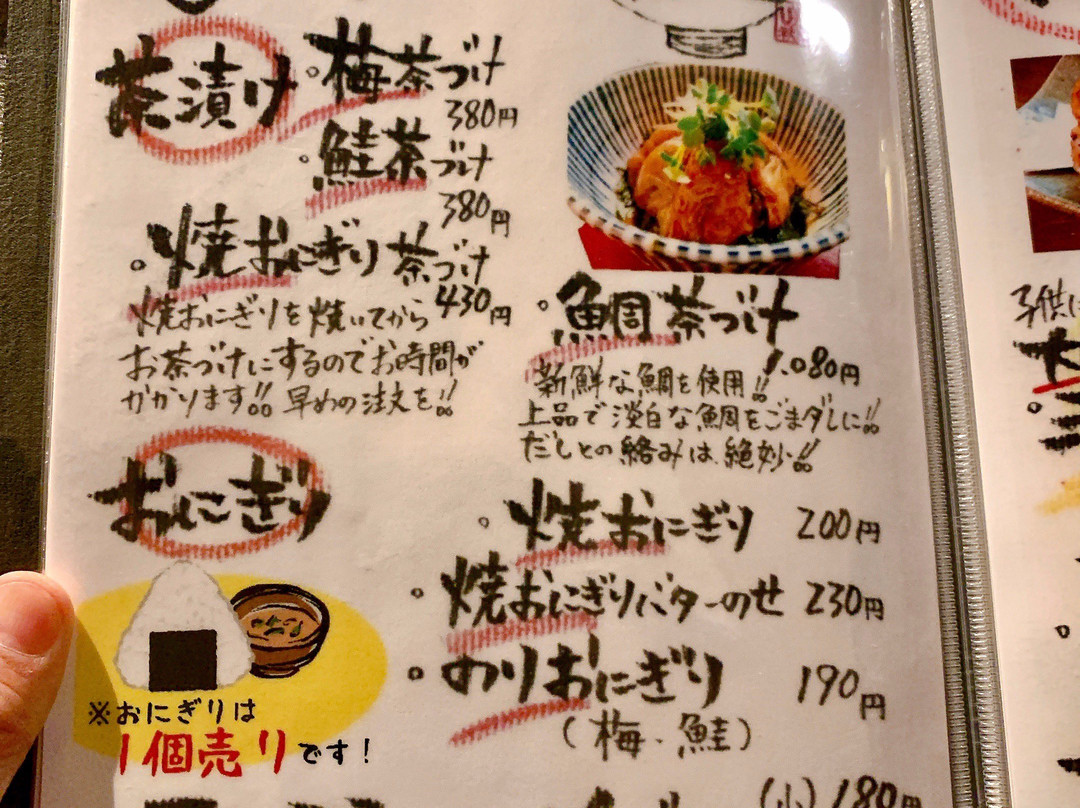 茶漬け
。梅茶づけ
380円
。鮭茶づけ
380円
。焼おにぎり茶づけ
430円
焼おにぎりを焼いてから
お茶づけにするのでお時間が
かかります!! 早めの注文を!!
。鯛茶づけ
1.080円
新鮮な鯛を使用!!
上品で淡白な鯛をごまダレに!!
だしとの絡みは、絶妙!!
おにぎり
。焼おにぎり 200円
。焼おにぎりバターのせ 230円
。のりおにぎり 190円
(梅・鮭)
※おにぎりは
1個売りです!
(小) 180円
子供に